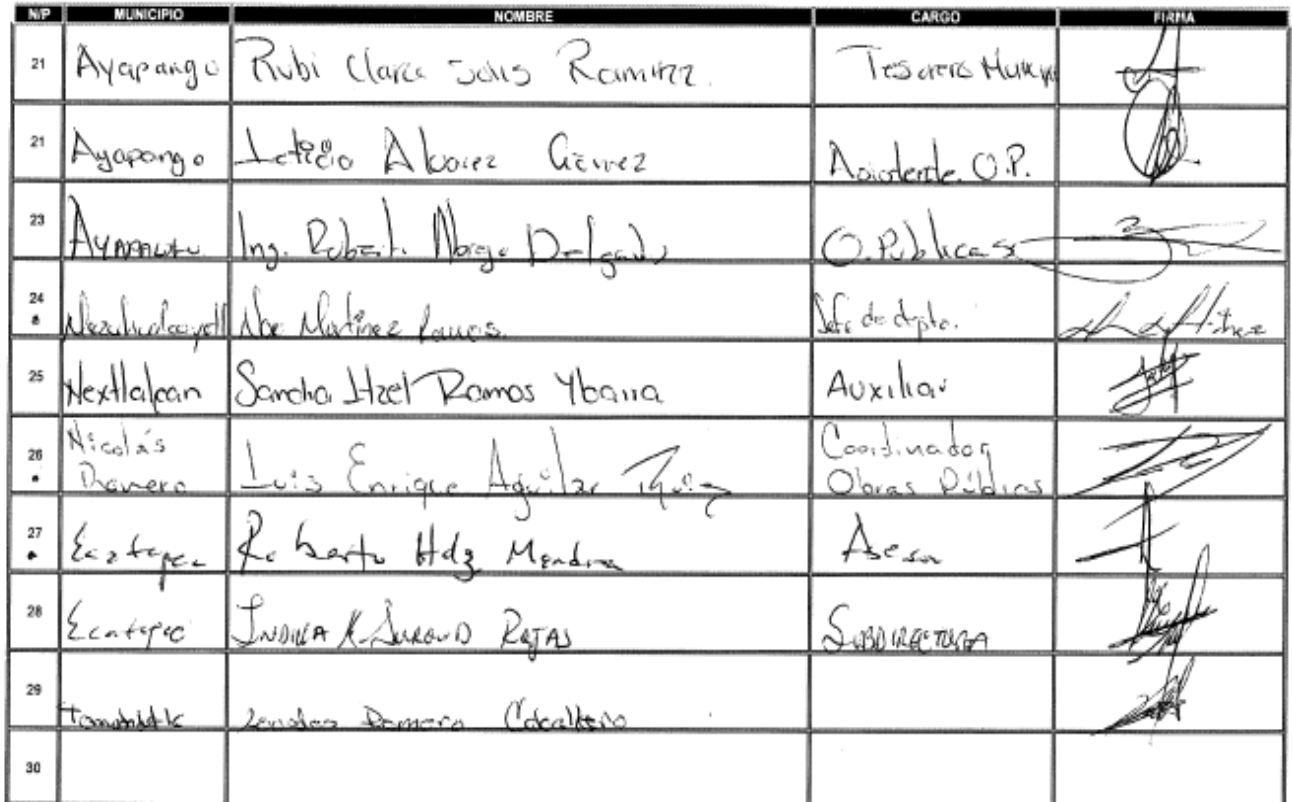 N/P MUNICIPIO NOMBRE CARGO FIRMA
21 Ayapango Rubi Clara Solis Ramirez. Tesorero
21 Ayapango Leticia Alvarez Gamez Asistente. O.P.
23 Ayapango Ing. Robert. Delgado O. Publicas
24 Noe Martinez Ramos. Jefe de dpto.
25 Nextlalpan Sandra Itzel Ramos Ybarra Auxiliar
26 Nicolás Romero Luis Enrique Aguilar Ruiz Coordinador Obras Públicas
27 Ecatepec Roberto Hdz Mendoza Asesor
28 Ecatepec ROJAS SUBDIRECTORA
29 Romero
30